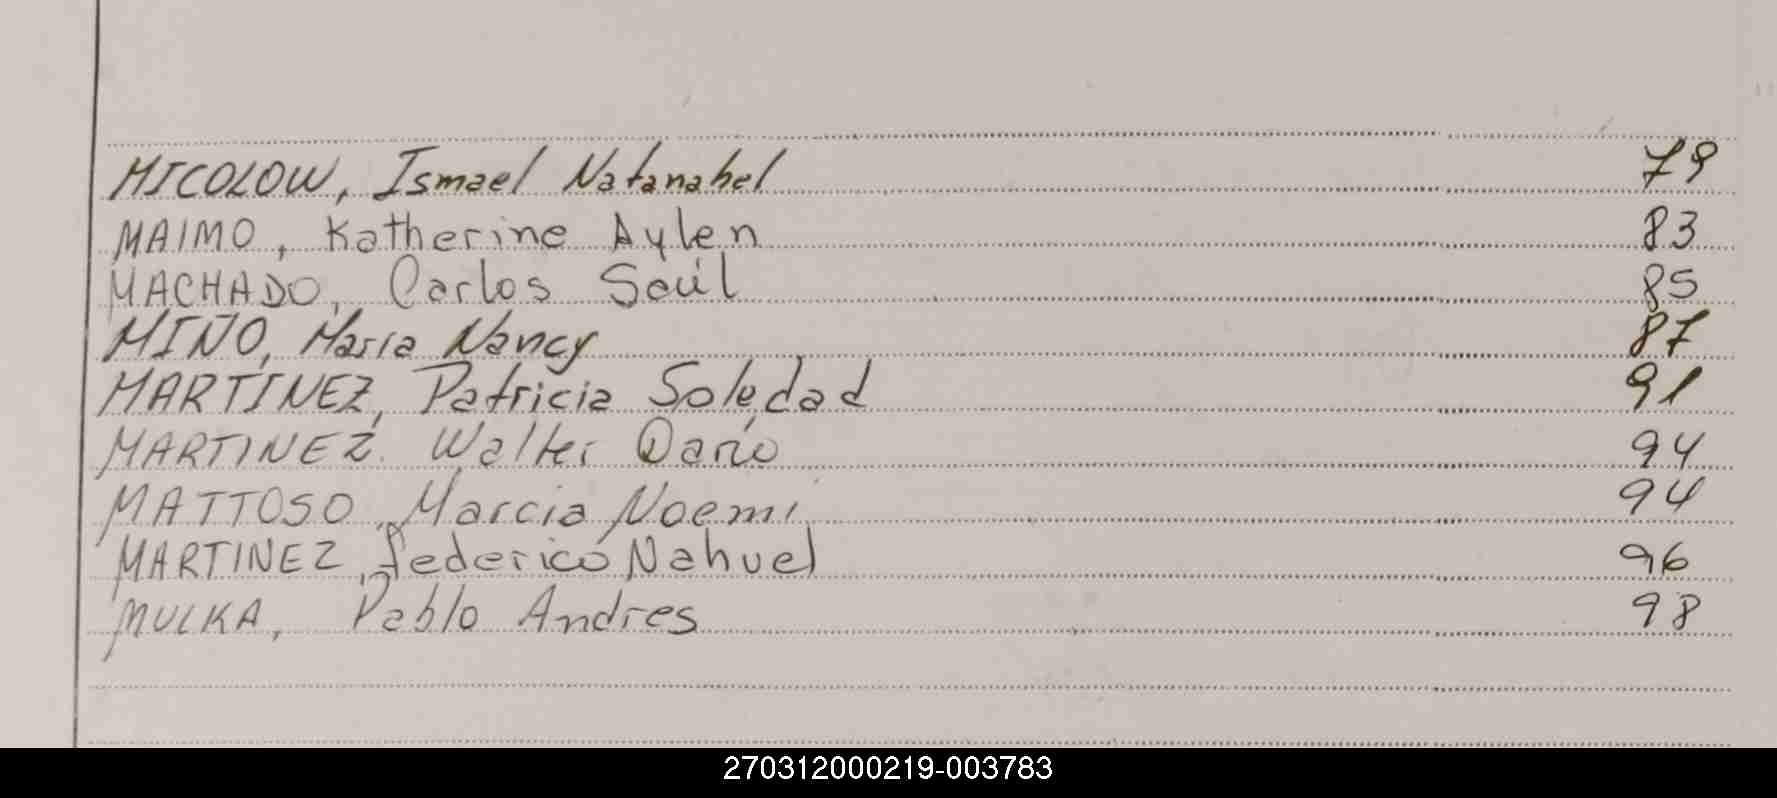 MICOLOW, Ismael Natanahel 79
MAIMO, Katherine Aylen 83
MACHADO, Carlos Saúl 85
MIÑO, Maria Nancy 87
MARTINEZ, Patricia Soledad 91
MARTINEZ. Walter Darío 94
MATTOSO, Marcia Noemi 94
MARTINEZ, Federico Nahuel 96
MULKA, Pablo Andres 98
270312000219-003783